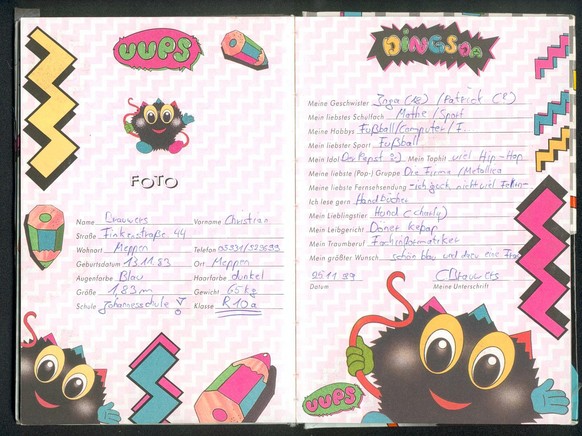 UUPS
FOTO
Name Brauwers Vorname Christian
Straße Finkenstraße 44
Wohnort Meppen Telefon
Geburtsdatum 13.11.83 Ort Meppen
Augenfarbe Blau Haarfarbe dunkel
Größe 1,83m Gewicht 65 kg
Schule Johannesschule Klasse R10a
DINGSDA
Meine Geschwister Inga /Patrick
Mein liebstes Schulfach Mathe/Sport
Meine Hobbys Fußball/Computer/F.
Mein liebster Sport Fußball
Mein Idol Der Papst :) Mein Tophit viel Hip-Hop
Meine liebste (Pop-) Gruppe Die Firma /Metallica
Meine liebste Fernsehsendung nicht viel
Ich lese gern Handbücher
Mein Lieblingstier Hund (charly)
Mein Leibgericht Döner kepap
Mein Traumberuf Fachinformatiker
Mein größter Wunsch schön blau und dazu eine
05 11 99 CBrauwers
Datum Meine Unterschrift
UUPS